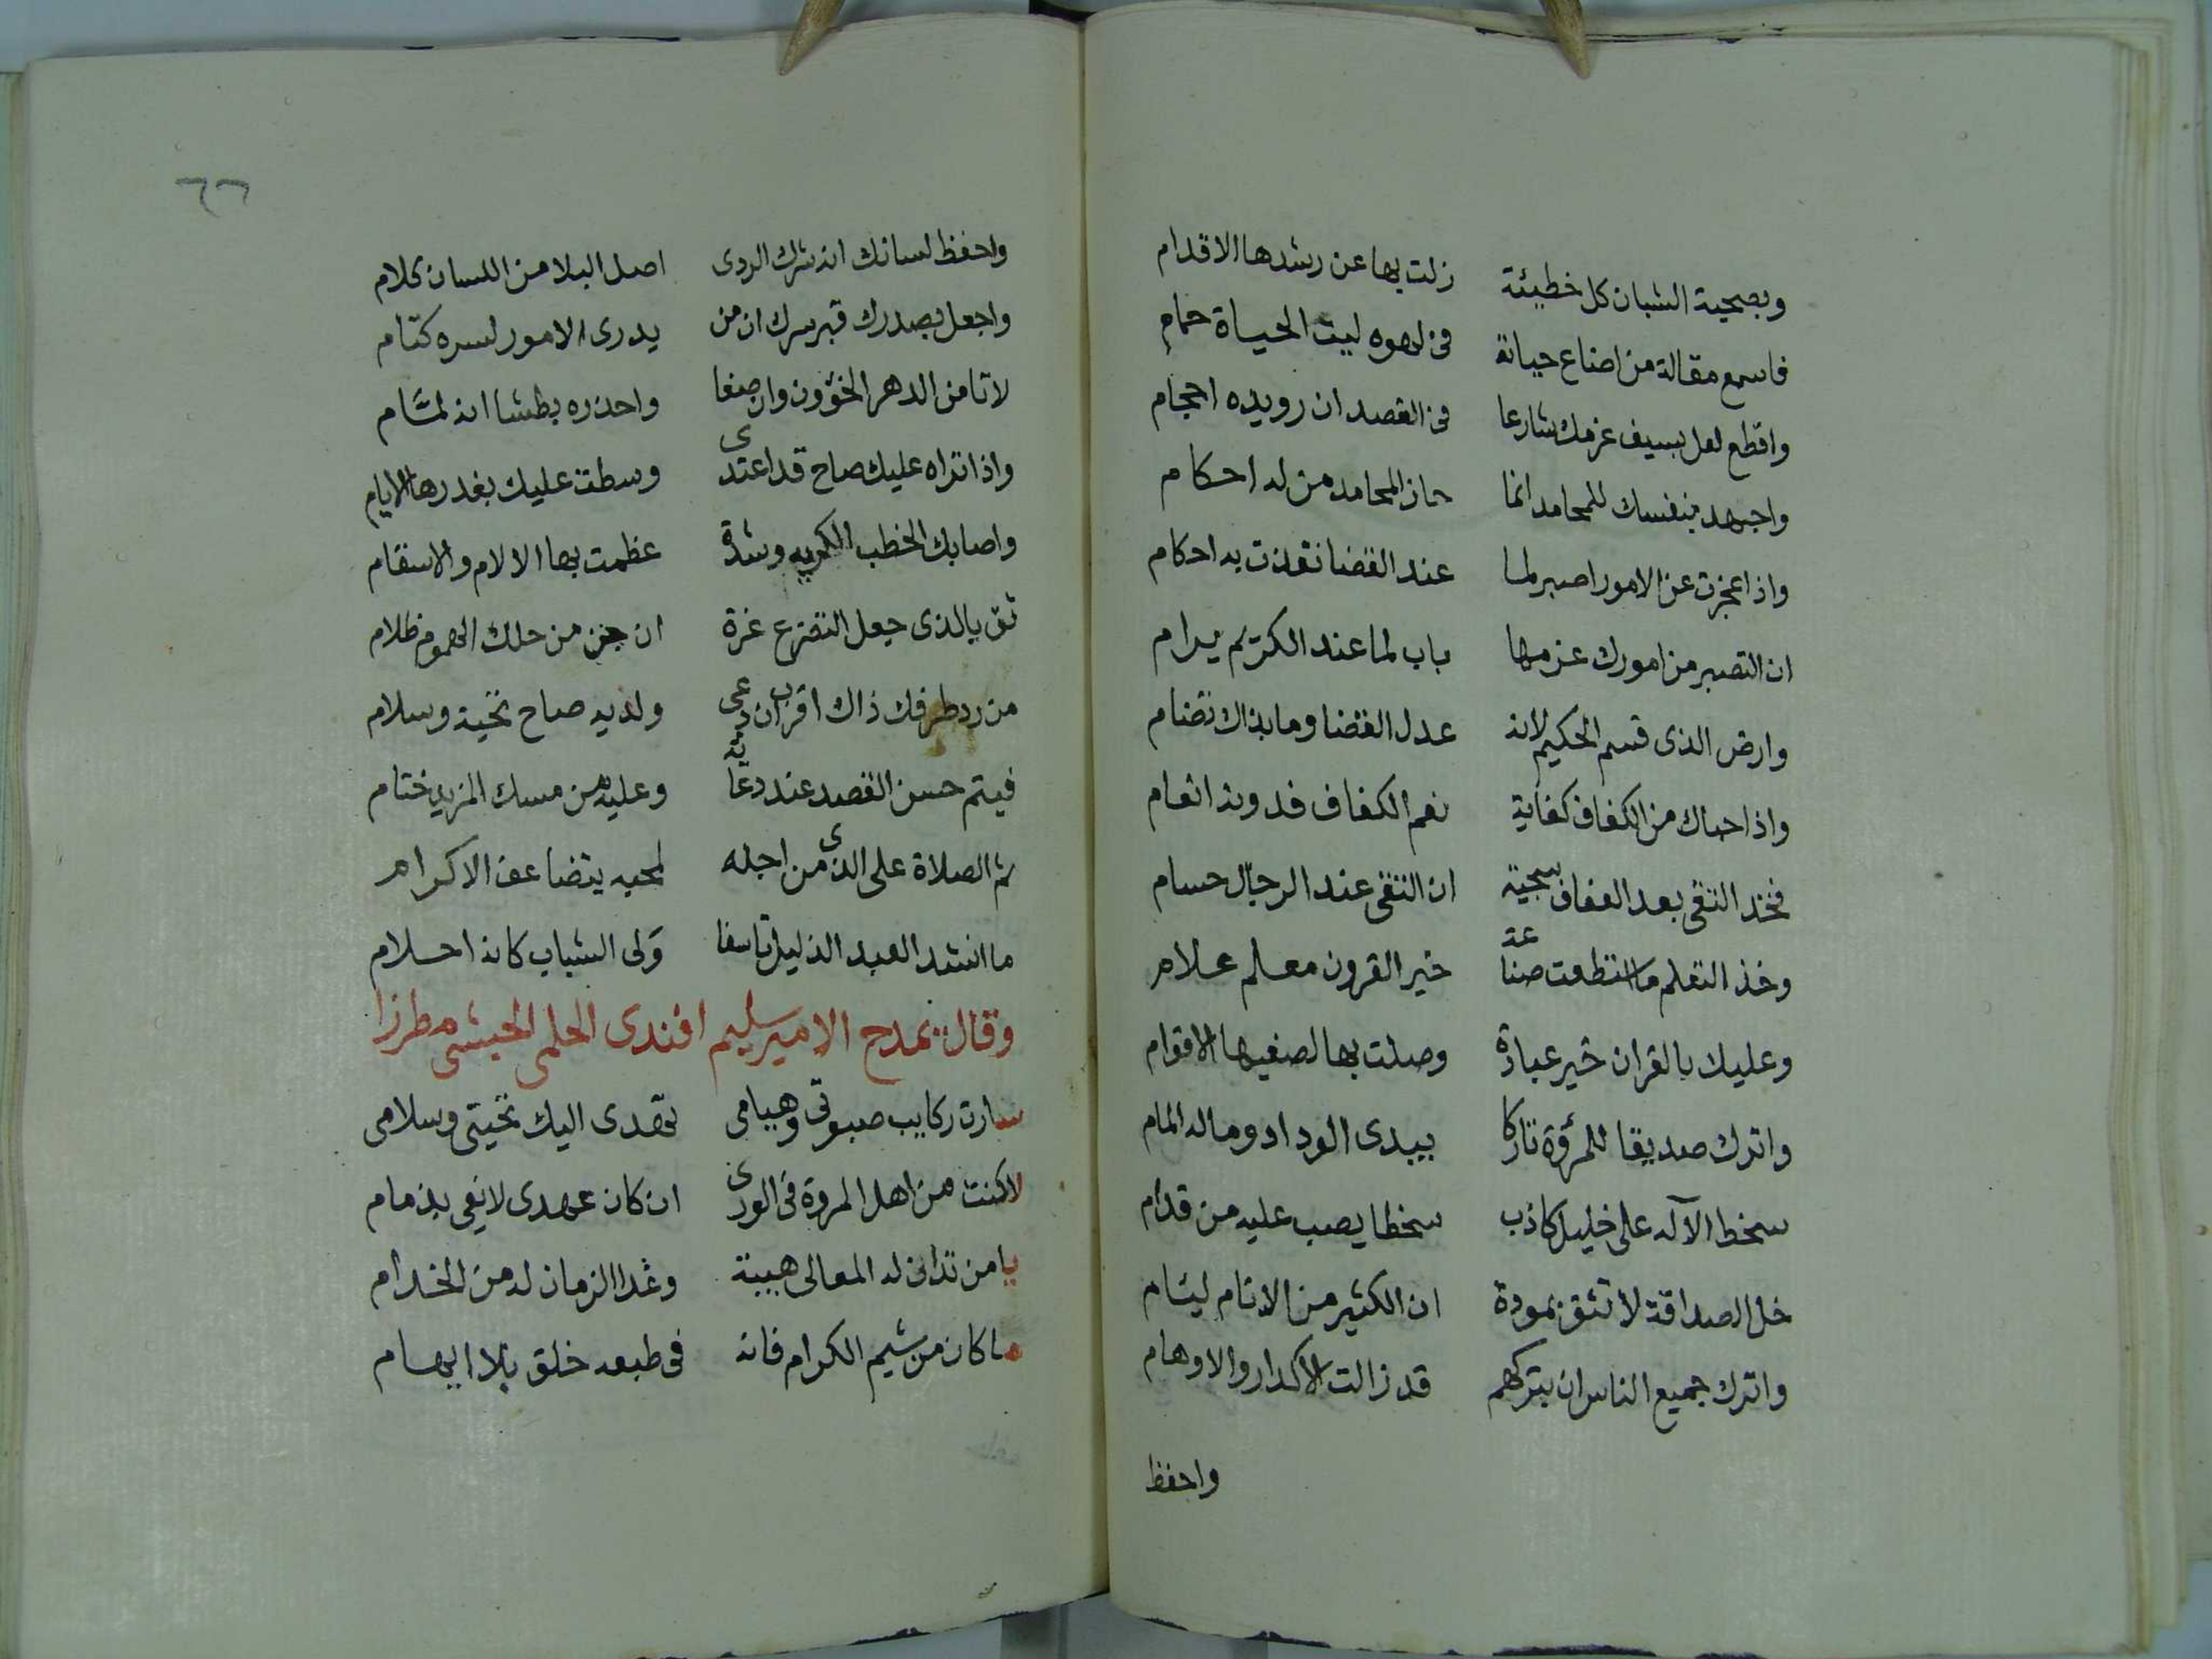 وبصحبة الشبان كل خطيئة زلت بها عن رشدها الاقدام
فاسمع مقالة من اضاع حياته فى لهوه ليت الحياة حمام
واقطع لعل بسيف عزمك شارعا فى القصد ان رويده احجام
واجهد بنفسك للمحامد انما حاز المحامد من له احكام
واذا عجزت عن الامور اصبر لما عند القضا نفذت به احكام
ان التصبر من امورك عزمها باب لما عند الكريم يرام
وارض الذى قسم الحكيم لانه عدل القضا وما بذاك تضام
واذا حباك من الكفاف كفاية نعم الكفاف فدونه انعام
فخذ التقى بعد العفاف سجية ان التقى عند الرجال حسام
وخذ التعلم ما استطعت صناعة خير القرون معلم علام
وعليك بالقران خير عبادة وصلت بها لصفيها الاقوام
واترك صديقا للمرؤة تاركا يبدى الوداد وماله المام
سخط الآله على خليل كاذب سخطا يصب عليه من قدام
خل الصداقة لا تثق بمودة ان الكثير من الانام ليئام
واترك جميع الناس ان بتركهم قد زالت الاكدار والاوهام
واحفظ
٦٦
واحفظ لسانك انه شرك الردى اصل البلا من اللسان كلام
واجعل بصدرك قبر سرك ان من يدرى الامور لسره كتام
لا تامن الدهر الخؤون وان صفا واحذره بطشا انه لمشام
واذا تراه عليك صاح قد اعتدى وسطت عليك بغدرها الايام
واصابك الخطب الكريه وشدة عظمت بها الالام والاسقام
ثق بالذى جعل التضرع غرة ان جن من حلك الهموم ظلام
من رد طرفك ذاك اقرب ان دعى ولديه صاح تحية وسلام
فيتم حسن القصد عند دعائه وعليه من مسك المزيد ختام
ثم الصلاة على الذى من اجله لمحبه يتضاعف الاكرام
ما انشد العبد الذليل تاسفا ولى الشباب كانه احلام
وقال يمدح الامير سليم افندى الحلمى الحبشى مطرزا
سارت ركايب صبوتى وهيامى تهدى اليك تحيتى وسلامى
لا كنت من اهل المروة فى الورى ان كان عهدى لا يفى بذمام
يا من تدانى له المعالى هيبة وغدا الزمان له من الخدام
ما كان من شيم الكرام فانه فى طبعه خلق بلا ايهام